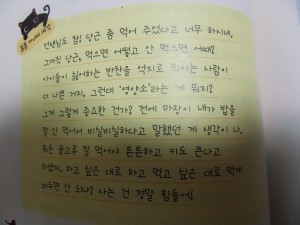 선생님도 참! 당근 좀 먹어 주었다고 너무 하시네.
그까짓 당근, 먹으면 어떻고 안 먹으면 어때?
아이들이 싫어하는 반찬을 억지로 먹이는 사람이
더 나쁜 거지. 그런데 '영양소'라는 게 뭐지?
그게 그렇게 중요한 건가? 전에 마왕이 내가 밥을
잘 안 먹어서 비실비실하다고 말했던 게 생각이 나.
뭐든 골고루 잘 먹어야 튼튼하고 키도 큰다고
하고 싶은 대로 하고 먹고 싶은 대로 먹게
하면 안 되나? 사는 건 정말 힘들어!